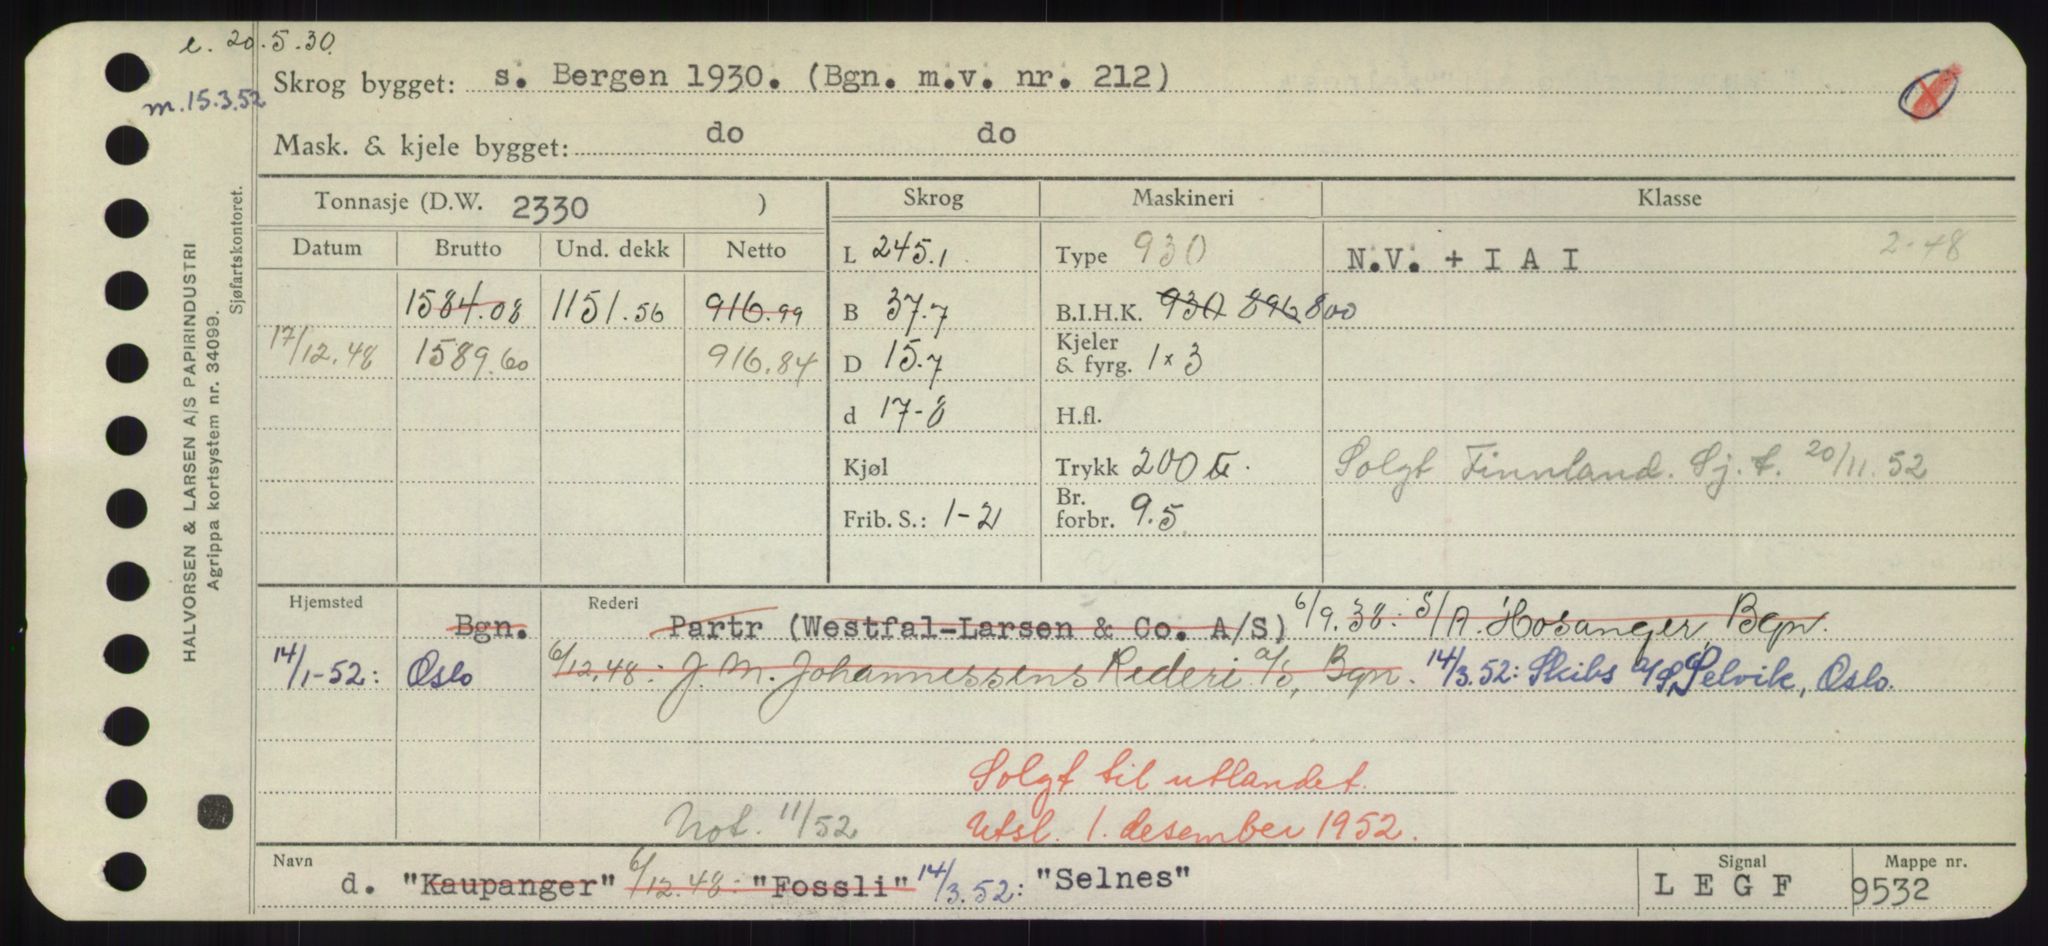 e. 20.5.30.
Skrog bygget: s. Bergen 1930. (Bgn. m.v. nr. 212)
m. 15.3.52
Mask. & kjele bygget: do do
HALVORSEN & LARSEN A/S PAPIRINDUSTRI
Agrippa kortsystem nr. 34099.
Sjøfartskontoret.
Tonnasje (D.W. 2330 ) Skrog Maskineri Klasse
Datum Brutto Und. dekk Netto L 245.1 Type 930 N.V. + I A I 2-48
1584.08 1151.56 916.99 B 37.7 B.I.H.K. 930 896 800
17/12.48 1589.60 916.84 D 15.7 Kjeler & fyrg. 1 x 3
d 17-8 H.fl.
Kjøl Trykk 200 tt. Solgt Finnland. Sj. t. 20/11.52
Frib. S.: 1-2 Br. forbr. 9.5
Hjemsted Rederi
Bgn. Partr (Westfal-Larsen & Co. A/S) 6/9.38: S/A. Hosanger, Bgn.
14/1-52: Oslo 6/12.48: J. M. Johannessens Rederi a/s, Bgn. 14/3.52: Skibs A/S Selvik, Oslo.
Solgt til utlandet.
Not. 11/52 Utsl. 1. desember 1952.
Navn Signal Mappe nr.
d. "Kaupanger" 6/12.48: "Fossli" 14/3.52: "Selnes" L E G F 9532